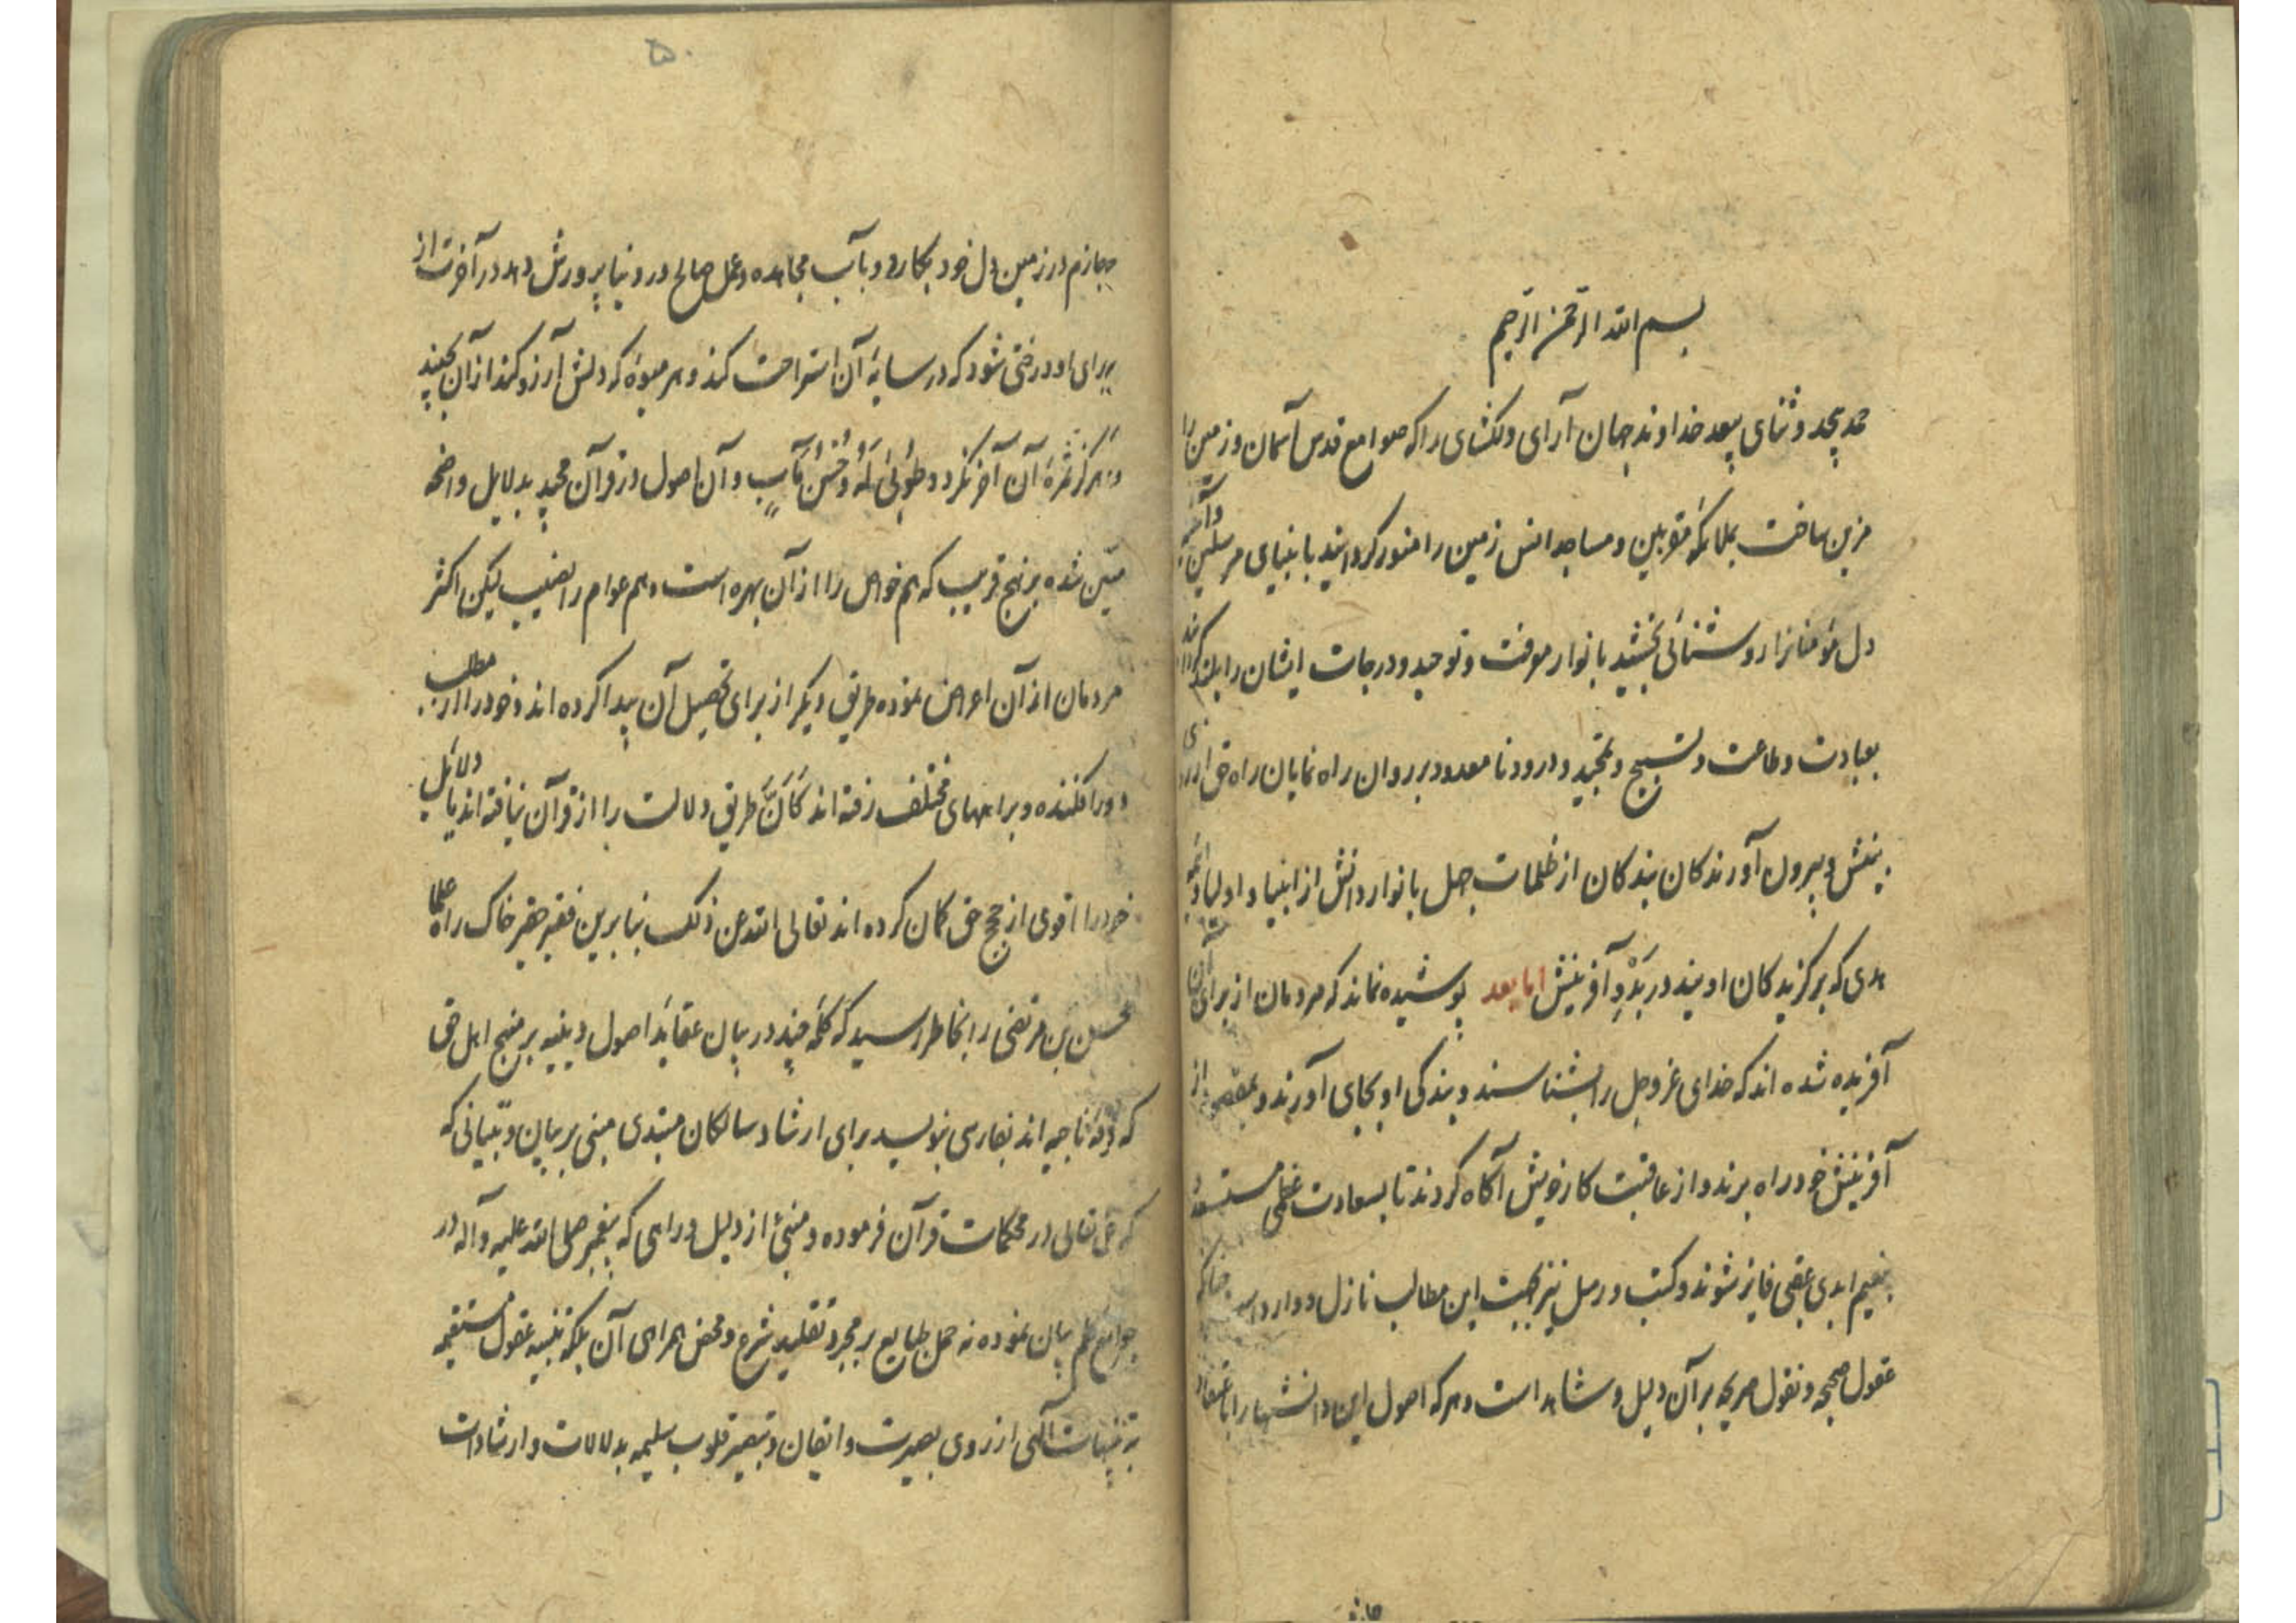 بسم الله الرحمن الرحیم
حمد بیحد و ثنای بیعد خداوند جهان آرای دلکشای را که صوامع قدس آسمان و زمین را
مزین ساخت بملائکه مقربین و مساجد انس زمین را منور کردانید بانبیای مرسلین و ائمه
دل مؤمنانرا روشنائی بخشید بانوار معرفت و توحید و درجات ایشان را بلند کرداند
بعبادت و طاعت و تسبیح و تمجید و درود نامعدود بر روان راه نمایان راه حق
بینش و بیرون آورندکان بندکان از ظلمات جهل بانوار دانش از انبیا و اولیا و ائمه
هدی که برکزیدکان اویند در بَدْوِ آفرینش اما بعد پوشیده نماند که مردمان از برای آن
آفریده شده اند که خدای عز وجل را بشناسند و بندکی او بجای آورند و بمقصود از
آفرینش خود راه برند و از عاقبت کار خویش آکاه کردند تا بسعادت عظمی مستسعد
بنعیم ابدی عقبی فایز شوند و کتب و رسل نیز بجهت این مطالب نازل و وارد چنانکه
عقول صحیحه و نقول صریحه بر آن دلیل و شاهد است و هر که اصول این دانشها را باعتقاد
۵۰
جازم در زمین دل خود بکارد و بآب مجاهده و عمل صالح در دنیا پرورش دهد در آخرت از
برای او درختی شود که در سایهٔ آن استراحت کند و هر میوهٔ که دلش آرزو کند از آن بچیند
و هرکز ثمرهٔ آن آخر نکردد و طُوبیٰ لَهُ وَحُسْنُ مَآبٍ و آن اصول در قرآن مجید بدلایل واضحه
مبیّن شده بر نهج قریب که هم خواص را از آن بهره است و هم عوام را نصیب لیکن اکثر
مردمان از آن اعراض نموده طریق دیکر از برای تحصیل آن پیدا کرده اند و خود را از مطلب
دور افکنده و براههای مختلف رفته اند کَاَنَّ طریق دلالت را از قرآن نیافته اند یا دلائل
خود را اقوی از حجج حق کمان کرده اند تعالی الله عن ذلک بنابرین فقیر حقیر خاک راه علما
محسن بن مرتضی را بخاطر رسید که کلمهٔ چند در بیان عقائد اصول دینیه بر منهج اهل حق
که فرقهٔ ناجیه اند بفارسی بنویسد برای ارشاد سالکان مبتدی مبنی بر بیان و تبیانی که
که حق تعالی در محکمات قرآن فرموده و منبیٔ از دلیل و راهی که پیغمبر صلی الله علیه و آله در
جوامع کلم بیان نموده نه حمل طبایع بر مجرد تقلید شرع و محض همراهی آن بلکه تنبیه عقول مستقیمه
بتنبیهات آلهی از روی بصیرت و ایقان و تبصیر قلوب سلیمه بدلالات و ارشادات